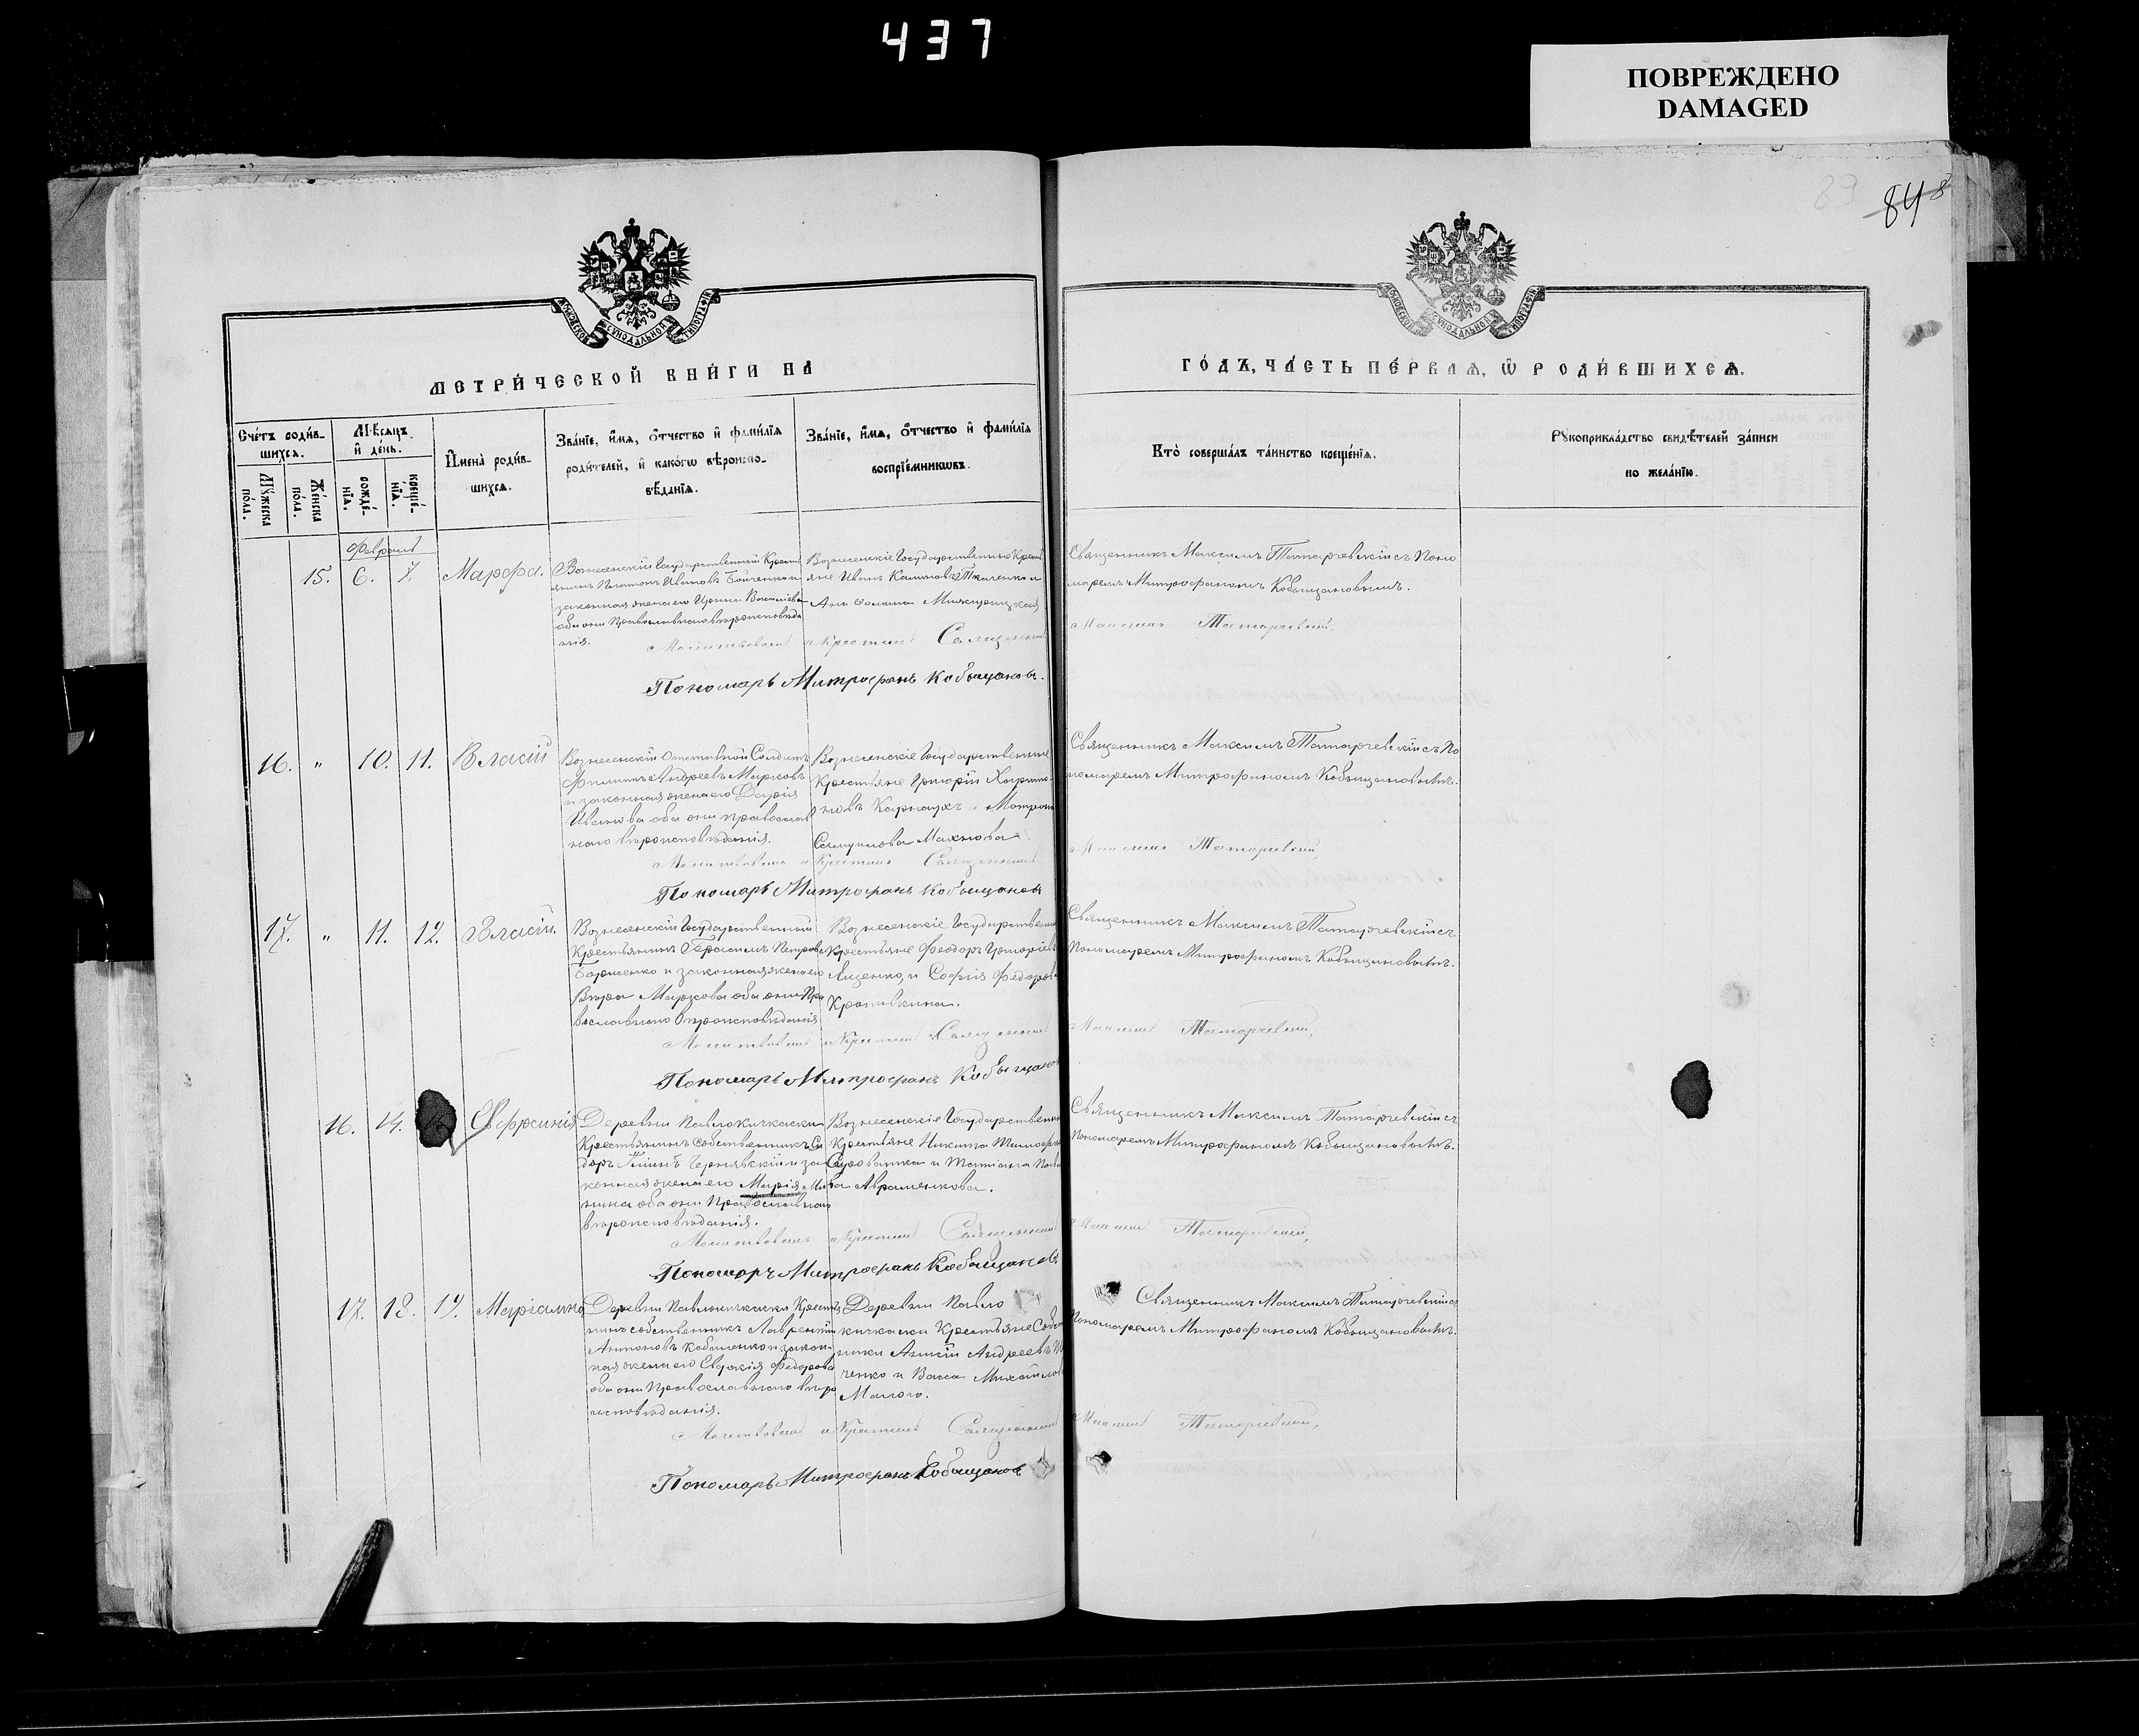 437
ПОВРЕЖДЕНО
DAMAGED
89
848
МОСКОВСКОЙ СѴНОДАЛЬНОЙ ТИПОГРАФІИ
МОСКОВСКОЙ СѴНОДАЛЬНОЙ ТИПОГРАФІИ
МЕТРИ́ЧЕСКОЙ КНИ́ГИ НА
ГО́ДЪ, ЧА́СТЬ ПЕ́РВАѦ, Ѡ҆ РОДИ́ВШИХСѦ.
Сче́тъ роди́в-
шихсѧ.
Мѹ́жеска по́ла.
Же́нска по́ла.
Мѣ́сѧцъ
и҆ де́нь.
рожде́-нїѧ.
креще́-нїѧ.
И҆мена̀ роди́в-
шихсѧ.
Зва́нїе, и҆́мѧ, ѻ҆́тчество и҆ фами́лїѧ
роди́телей, и҆ како́гѡ вѣроиспо-
вѣ́данїѧ.
Зва́нїе, и҆́мѧ, ѻ҆́тчество и҆ фами́лїѧ
воспрїе́мникѡвъ.
Кто̀ соверша́лъ та́инство креще́нїѧ.
Рѹкоприкла́дство свидѣ́телей за́писи
по жела́нїю.
Февраль
15. 6. 7. Марѳа.
Вознесенскій Государственный Кресть
янинъ Платонъ Ивановъ Бойченко и
законная жена его Ирина Васильева
оба они Православнаго вѣроисповѣда
нія.
Вознесенскіе Государственные Кресть
яне Иванъ Ткаленко и
Священникъ Максимъ Татарчевскій съ Поно
маремъ Митрофаномъ Кобыщановымъ.
Молитвовалъ и Крестилъ Священникъ Максимъ Татарчевскій,
Пономарь Митрофанъ Кобыщановъ.
16. „ 10. 11. Власій
Вознесенскій Отставной Солдатъ
Филиппъ Андреевъ Марковъ
и законная жена его Дарія
Иванова оба они православ
наго вѣроисповѣданія.
Вознесенскіе Государственные
Крестьяне Григорій Харито-
новъ Карнаухъ и Матрона
Самуилова Махнова.
Священникъ Максимъ Татарчевскій съ По
номаремъ Митрофаномъ Кобыщановымъ.
Молитвовалъ и Крестилъ Священникъ Максимъ Татарчевскій,
Пономарь Митрофанъ Кобыщановъ
17. „ 11. 12. Власій.
Вознесенскій Государственный
Крестьянинъ Герасимъ Петровъ
Борисенко и законная жена его
Вѣра Маркова оба они Пра
вославнаго вѣроисповѣданія
Вознесенскіе Государственные
Крестьяне Феодоръ Григоріевъ
Яценко, и Софія Федорова
Кропивкина.
Священникъ Максимъ Татарчевскій съ
Пономаремъ Митрофаномъ Кобыщановымъ.
Молитвовалъ и Крестилъ Священникъ Максимъ Татарчевскій,
Пономарь Митрофанъ Кобыщановъ
16. 14. Евфросинія
Деревни Павлокичкаски
Крестьянинъ собственникъ Си
доръ Чернявскій и за
конная жена его Марія
оба они Православнаго
вѣроисповѣданія.
Вознесенскіе Государственные
Крестьяне Никита
и Татіана Павло
ва Авраменкова.
Священникъ Максимъ Татарчевскій съ
Пономаремъ Митрофаномъ Кобыщановымъ.
Молитвовалъ и Крестилъ Священникъ Максимъ Татарчевскій,
Пономарь Митрофанъ Кобыщановъ
17. 18. 19. Маріамна
Деревни Павлокичкаски Кресть
нинъ собственникъ Лаврентій
Антоновъ Кобиленко и закон-
ная жена его Евдокія Федорова
оба они Православнаго вѣро
исповѣданія.
Деревни Павло
кичкаски Крестьяне Собст
ники Анисій Андреевъ
ченко и Васса Михайлова
Малого.
Священникъ Максимъ Татарчевскій съ
Пономаремъ Митрофаномъ Кобыщановымъ.
Молитвовалъ и Крестилъ Священникъ Максимъ Татарчевскій,
Пономарь Митрофанъ Кобыщановъ